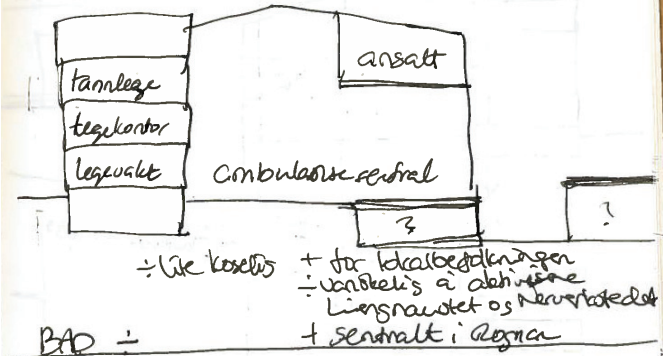 ansatt
tannlege
legekontor
legevakt
ambulansesentral
?
?
÷ lite koselig + for lokalbefolkningen
÷ vanskelig å aktivisere
og Nerverkstedet
BAD ÷ + sentralt i Rognan